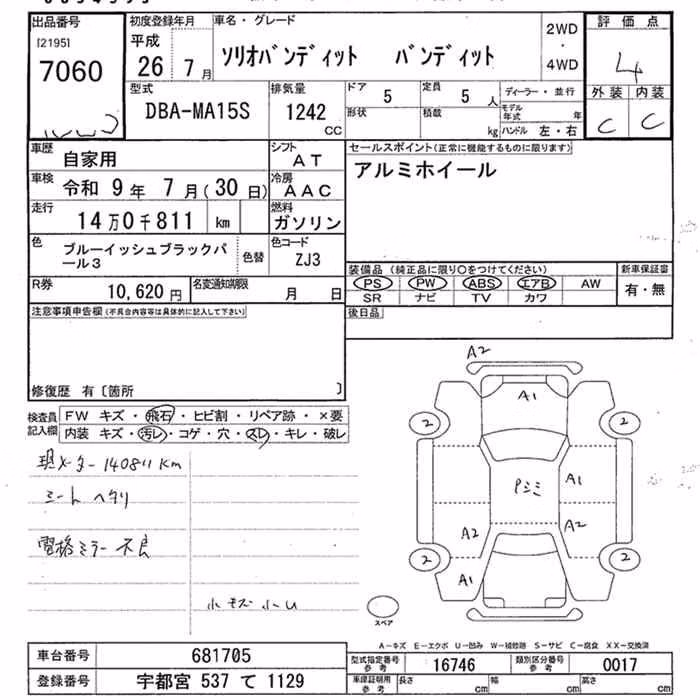 出品番号 初度登録年月 車名・グレード 2WD 評価点
[21951] 平成 ・
7060 26 7月 ソリオバンディット バンディット 4WD 4
型式 排気量 ドア 5 定員 5人 ディーラー・並行 外装 内装
DBA-MA15S 1242 CC 形状 積載 kg モデル年式 年 C C
ハンドル 左・右
車歴 自家用 シフト AT セールスポイント(正常に機能するものに限ります)
車検 令和 9年 7月(30日) 冷房 AAC アルミホイール
走行 14万0千811 km 燃料 ガソリン
色 ブルーイッシュブラックパール3 色替 色コード ZJ3
装備品 (純正品に限り○をつけてください) 新車保証書
R券 10,620円 名変通知期限 月 日 PS PW ABS エアB AW 有・無
SR ナビ TV カワ
注意事項申告欄(不具合内容等は具体的に記入して下さい) 後日品
修復歴 有〔箇所 〕
検査員記入欄 FW キズ・飛石・ヒビ割・リペア跡・×要
内装 キズ・汚レ・コゲ・穴・スレ・キレ・破レ
現メーター140811Km
シートヘタリ
電格ミラー不良
小キズ小U
A2
A1
2 2
Pシミ A1
A2 A2
2 2
A1
スペア
A-キズ E-エクボ U-凹み W-補修跡 S-サビ C-腐食 XX-交換済
車台番号 681705 型式指定番号 参考 16746 類別区分番号 参考 0017
登録番号 宇都宮 537 て 1129 車庫証明用 参考 長さ cm 幅 cm 高さ cm